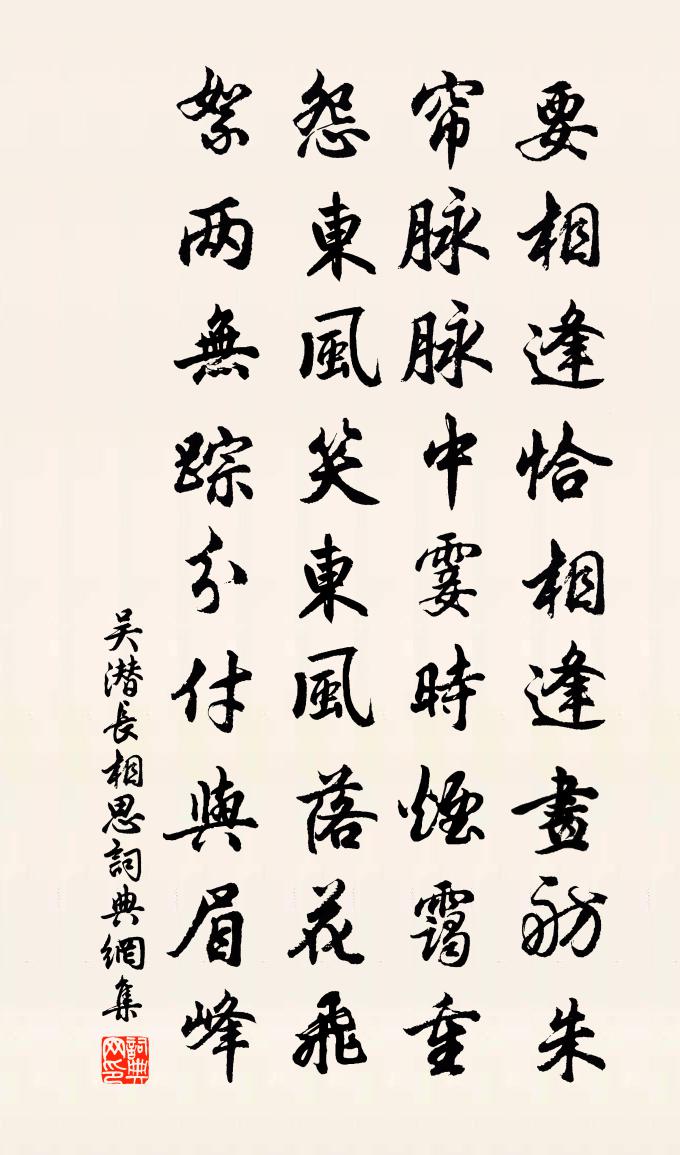 要相逢恰相逢畫舫朱
帘脉脉中霎時煙靄重
怨東風笑東風落花飛
絮两無踪分付與眉峰
吴潜長相思詞典網集
詞典网印